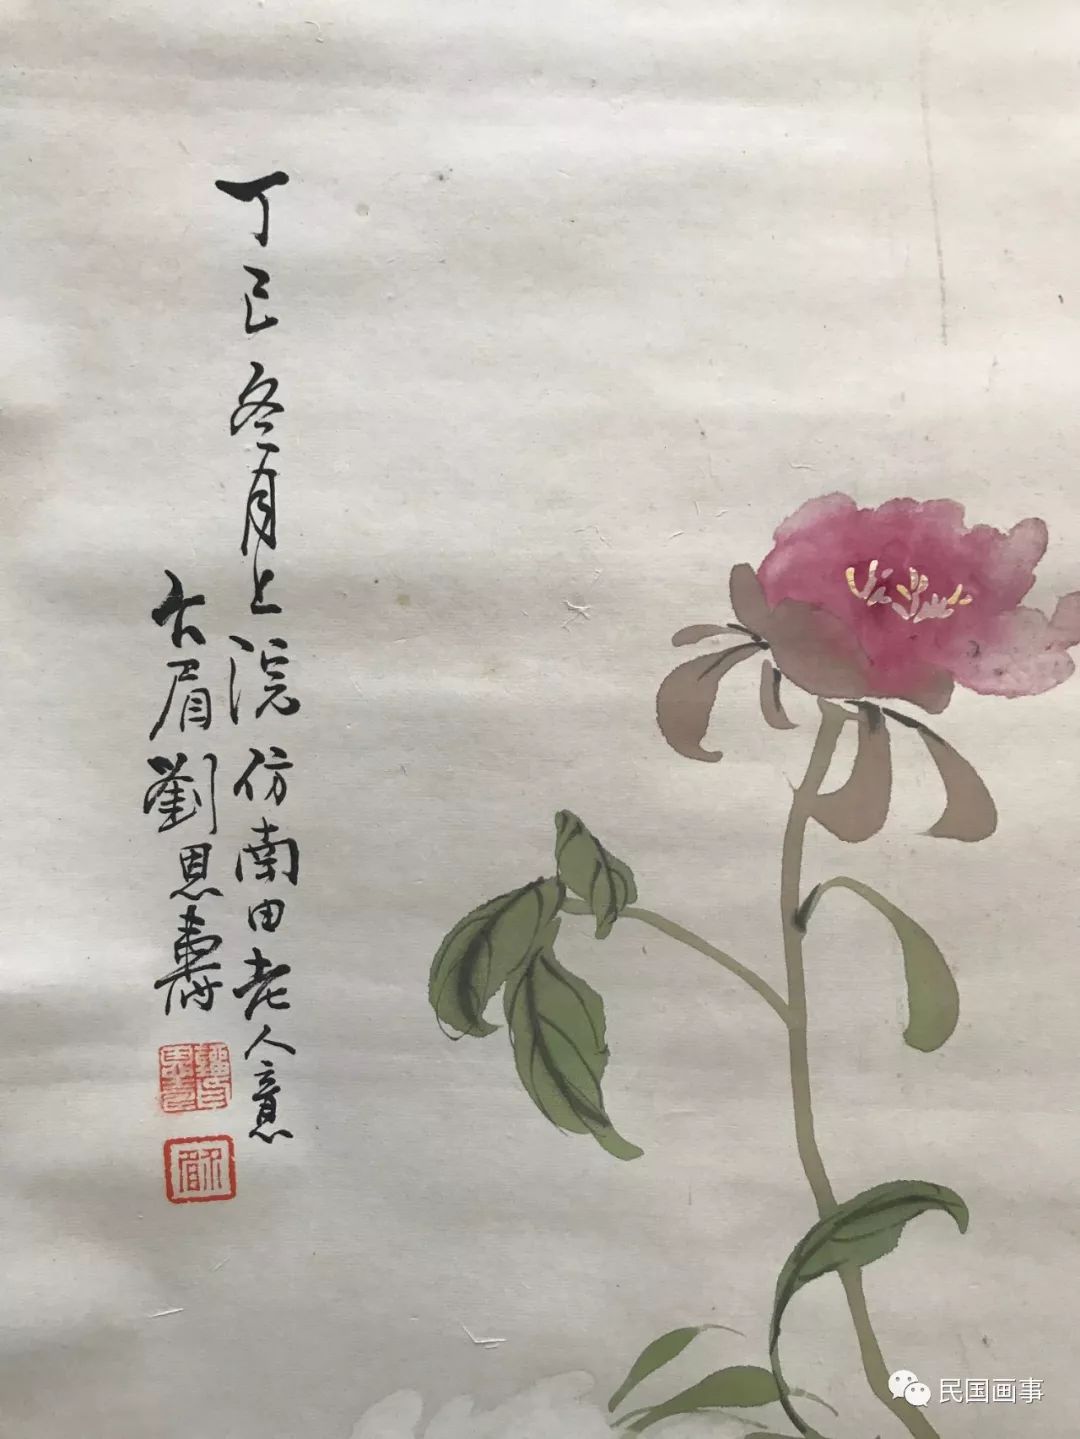 丁巳冬月上浣仿南田老人意
古眉劉恩壽
民国画事